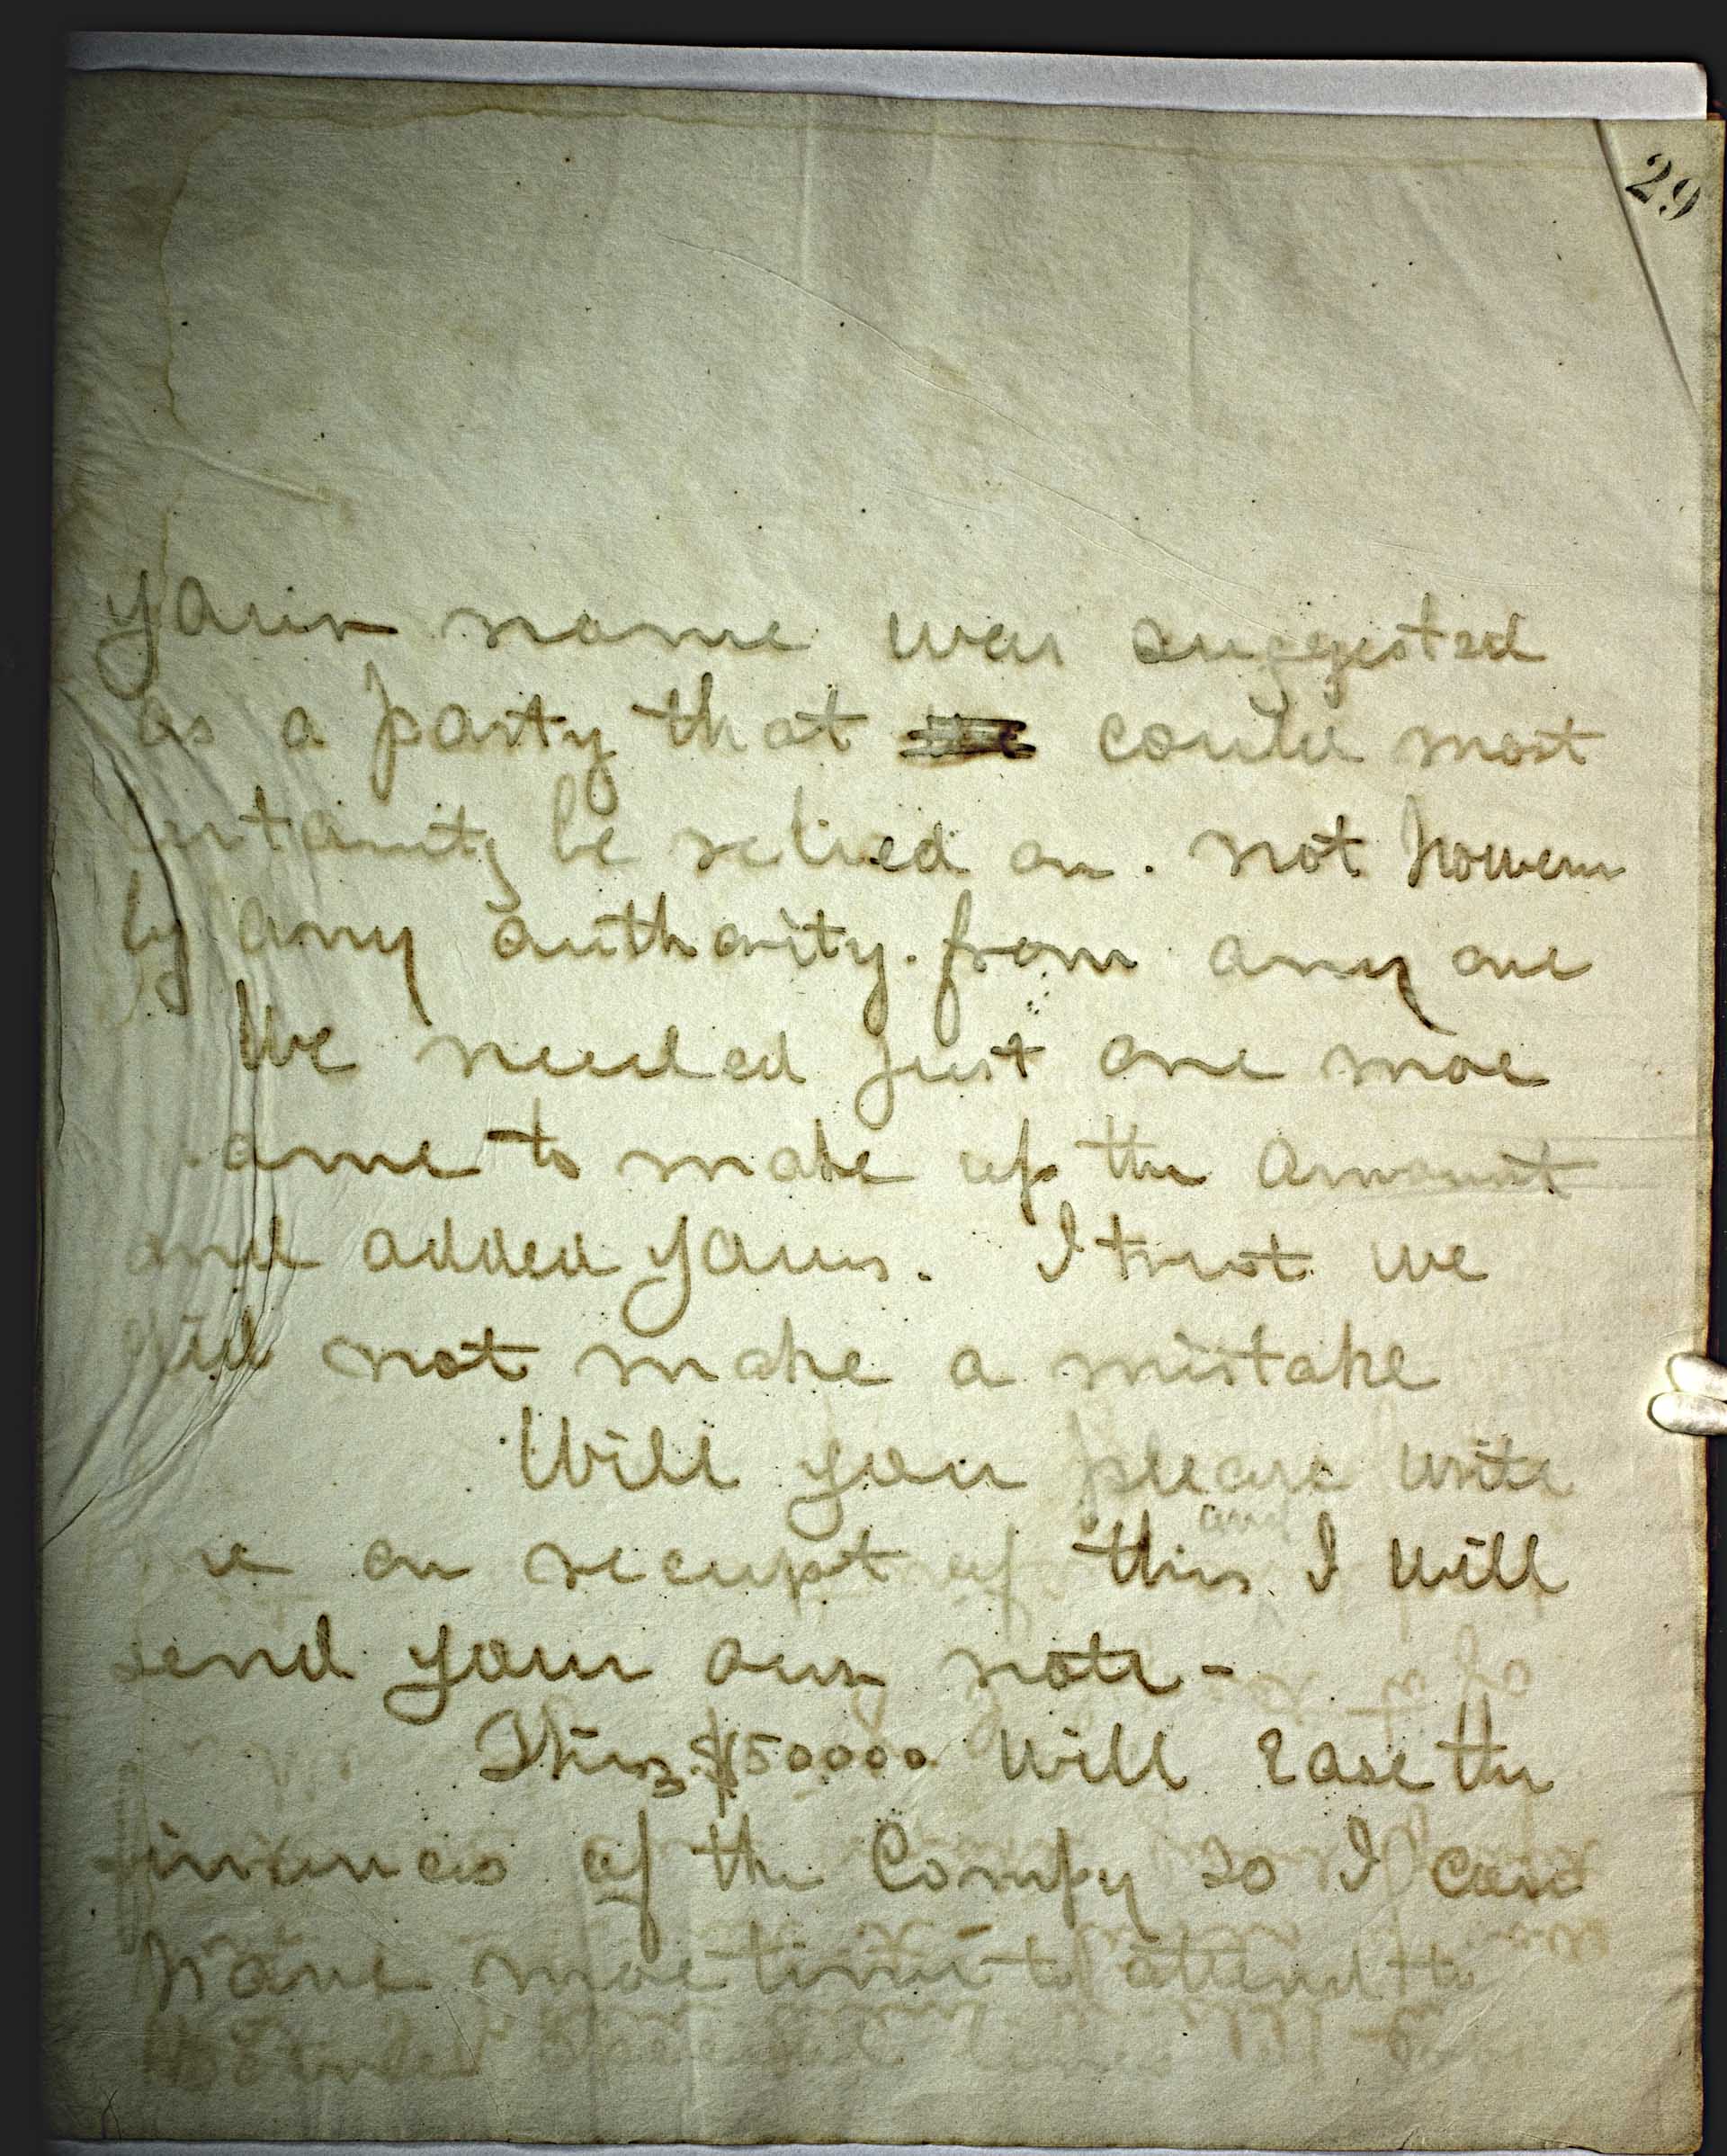 29
your name was suggested
as a party that could most
certainty be relied on. not however
by any authority. from any one
We needed just one moe
ame to make up the amount
and added yours. I trust we
did not make a mistake
Will you please write
me on receipt of this and I will
send your own note -
This $50000 will ease the
finances of the Compy so I can
have moe time to attend to